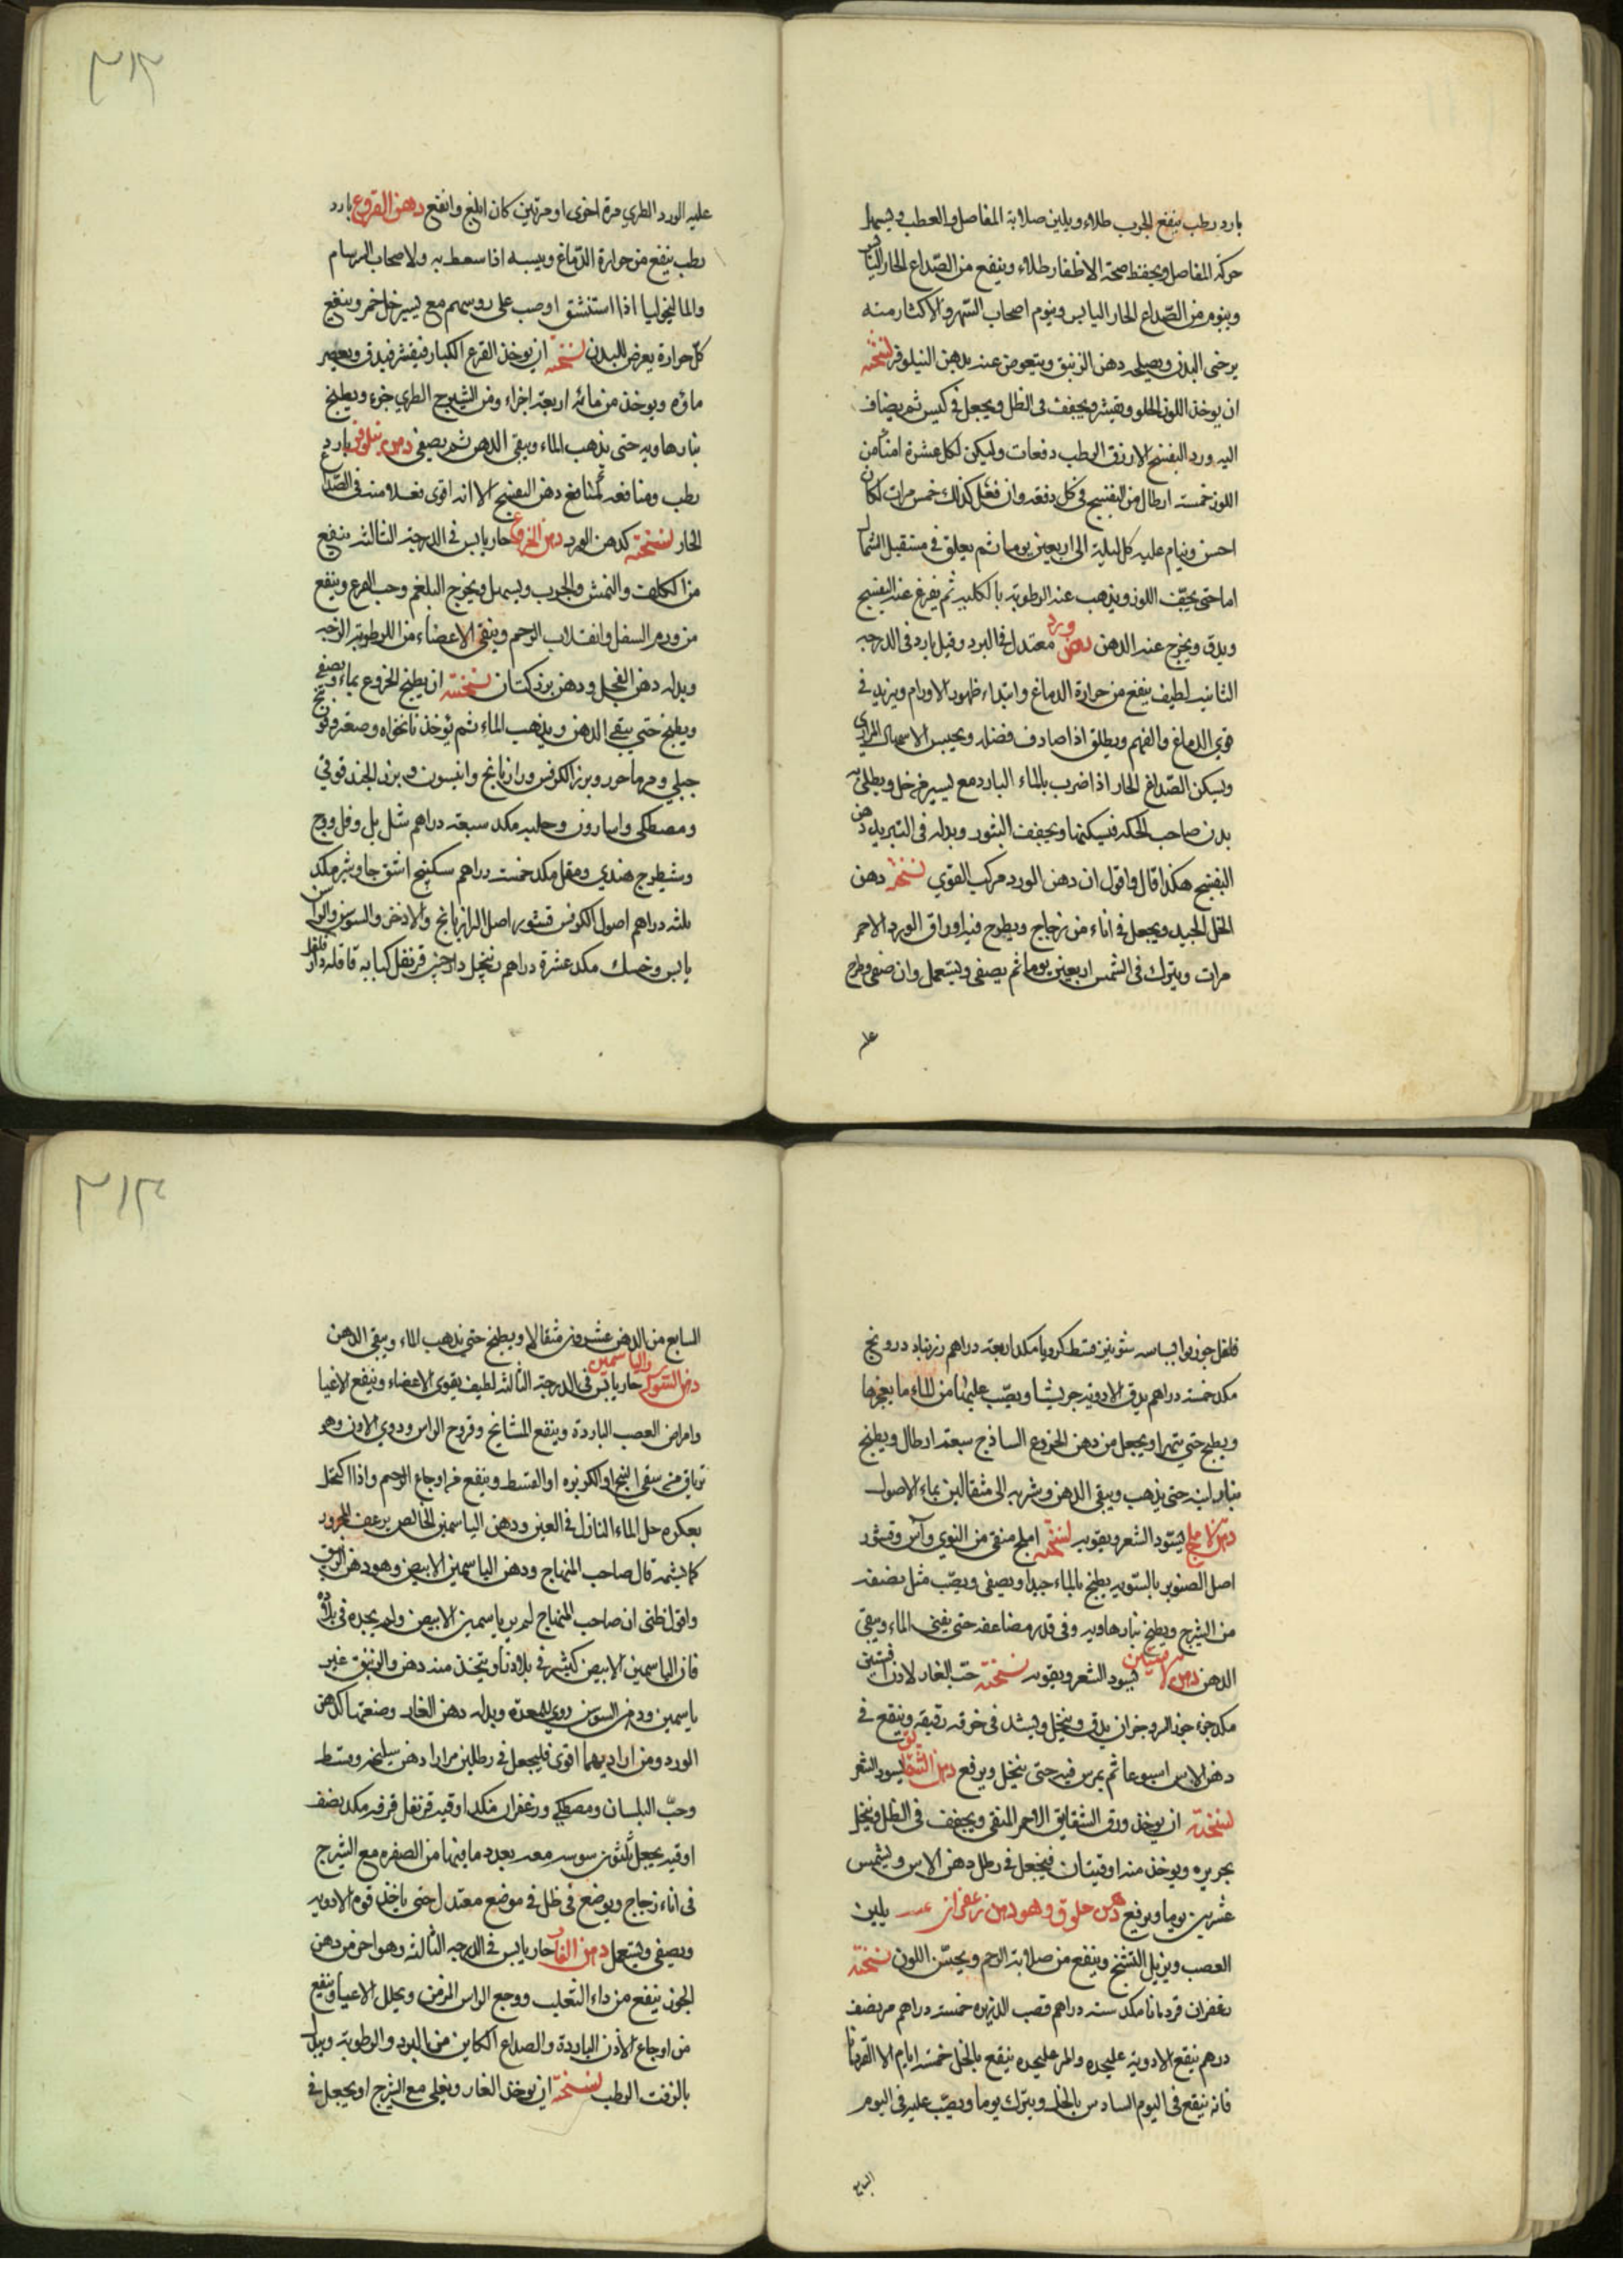 بارد رطب ينفع الجرب طلاء ويلين صلابة المفاصل والعصب ويسهل
حركة المفاصل ويحفظ صحة الاظفار طلاء وينفع من الصداع الحار اليابس
وينوم من الصداع الحار اليابس وينوم اصحاب السهر والاكثار منه
يرخى البدن ويصلحه دهن الزنبق ويتعوض عنه بدهن النيلوفر نسخته
ان يوخذ اللوز الحلو ويقشر ويجفف فى الظل ويجعل فى كيس ثم يضاف
اليه ورد البنفسج الازرق الرطب دفعات وليكن لكل عشرة امنا من
اللوز خمسة ارطال من البنفسج فى كل دفعة وان فعل كذلك خمس مرات لكان
احسن وينام عليه كل ليلة الى اربعين يوما ثم يعلق فى مستقبل الشمال
اما حتى يجف اللوز ويذهب عنه الرطوبة بالكلية ثم يفرغ عنه البنفسج
ويدق ويخرج عنه الدهن دهن ورد معتدل فى البرد وقيل بارد فى الدرجة
الثانية لطيف ينفع من حرارة الدماغ وابتداء ظهور الاورام ويزيد فى
قوى الدماغ والفهم ويطلق اذا صادف فضلة ويحبس الاسهال المرارى
ويسكن الصداع الحار اذا ضرب بالماء البارد مع يسير من خل ويطلى به
بدن صاحب الحكة فيسكنها ويجفف البثور وبدله فى التبريد دهن
البنفسج هكذا قال واقول ان دهن الورد مركب القوى نسخته دهن
الخل الجيد ويجعل فى اناء من زجاج ويطرح فيه اوراق الورد الاحمر
مرات ويترك فى الشمس اربعين يوما ثم يصفى ويستعمل وان صفى وطرح
عليه
٣١٣
عليه الورد الطري مرة اخرى او مرتين كان ابلغ وانفع دهن القرع بارد
رطب ينفع من حرارة الدماغ ويبسه اذا سعط به ولاصحاب البرسام
والماليخوليا اذا استنشق او صب على روسهم مع يسير خل خمر وينفع
كل حرارة يعرض للبدن نسخته ان يوخذ القرع الكبار فيقشر فيدق ويعصر
ماؤه ويوخذ من مائه اربعة اجزاء ومن الشيرج الطري جزء ويطبخ
بنار هاديه حتى يذهب الماء ويبقى الدهن ثم يصفى دهن نيلوفر بارد
رطب ومنافعه كمنافع دهن البنفسج الا انه اقوى فعلا منه فى الصداع
الحار نسخته كدهن الورد دهن الخروع حار يابس فى الدرجة الثالثة ينفع
من الكلف والنمش والجرب ويسهل ويخرج البلغم وحب القرع وينفع
من ورم السفل وانقلاب الرحم وينقى الاعضاء من الرطوبة الزجه
وبدله دهن الفجل ودهن بزر كتان نسخته ان يطبخ الخروع بماء ويصفى
ويطبخ حتى يبقى الدهن ويذهب الماء ثم يوخذ نانخواه وصعتر وفوتنج
جبلي ومرماحور وبزر الكرفس ورازيانج وانيسون وبزر الجندقوقى
ومصطكى واسارون وحلبه مكد سبعة دراهم شل بل وفل ووج
وشيطرج هندي ومقل مكد خمسة دراهم سكبينج اشق جاوشير مكد
ثلثة دراهم اصول الكرفس قشور اصل الرازيانج والاذخر والسوسن والراسن
يابس وخسك مكد عشرة دراهم زنجبيل دارچينى قرنفل كبابه قاقله دار فلفل
فلفل جوزبوا بسباسه شونيز قسط كرويا مكد اربعة دراهم زرنباد درونج
مكد خمسة دراهم يدق الادويه جريشا ويصب عليها من الماء ما يغمرها
ويطبخ حتى يتهرا ويجعل من دهن الخروع الساذج سبعة ارطال ويطبخ
بنار لينه حتى يذهب ويبقى الدهن وشربه الى مثقالين بماء الاصول
دهن الاملج يسود الشعر ويقويه نسخته املج منقى من النوي وآس وقشور
اصل الصنوبر بالسوية يطبخ بالماء جيدا ويصفى ويصب مثل نصفه
من الشيرج ويطبخ بنار هاديه وفى قدر مضاعفه حتى يفنى الماء ويبقى
الدهن دهن يسود الشعر ويقويه نسخته حب الغار لادن افسنتين
مكد جزء جوز السرو جزان يدق وينخل ويشد فى خرقه رقيقه وينقع فى
دهن الاس اسبوعا ثم يمرس فيه حتى ينحل ويرفع دهن الشقايق يسود الشعر
نسخته ان يوخذ ورق الشقايق الاحمر المنقى ويجفف فى الظل وينخل
بحريره ويوخذ منه اوقيتان فيجعل فى رطل دهن الاس ويشمس
عشرين يوما ويرفع دهن خلوق وهو دهن زعفران يلين
العصب ويزيل التشنج وينفع من صلابة الرحم ويحسن اللون نسخته
زعفران قردمانا مكد ستة دراهم قصب الذريره خمسة دراهم مر نصف
درهم ينقع الادوية عليحده والمر عليحده ينقع بالخل خمسة ايام الا القردمانا
فانه ينقع فى اليوم السادس بالخل ويترك يوما ويصب عليه فى اليوم
السابع
السابع من الدهن عشرون مثقالا ويطبخ حتى يذهب الماء ويبقى الدهن
دهن السوسن والياسمين حار يابس فى الدرجة الثالثة لطيف يقوى الاعضاء وينفع الاعيا
وامراض العصب الباردة وينفع المشايخ وقروح الراس ودوي الاذن وهو
ترياق من سقى البنج او الكزبره او الفطر وينفع من اوجاع الرحم واذا اكتحل
بعكره حل الماء النازل فى العين ودهن الياسمين الخالص يرعف المحرور
كما يشمه قال صاحب المنهاج ودهن الياسمين الابيض وهو دهن الزنبق
واقول ظنى ان صاحب المنهاج لم ير ياسمين الابيض ولم يجده فى بلاده
فان الياسمين الابيض كثير فى بلادنا ويتخذ منه دهن والزنبق غير
ياسمين ودهن السوسن ردي للمعدة وبدله دهن الغار وصنعتها كدهن
الورد ومن اراد بهما اقوى فليجعل فى رطلين مرارا دهن سليخه وقسط
وحب البلسان ومصطكى وزعفران مكد اوقيه قرنفل قرفه مكد نصف
اوقيه يجعل ثلثون سوسنه معه بعدد ما فيها من الصفره مع الشيرج
فى اناء زجاج ويوضع فى ظل فى موضع معتدل حتى ياخذ قوة الادويه
ويصفى ويستعمل دهن الغار حار يابس فى الدرجه الثالثة وهو احر من دهن
الجوز ينفع من داء الثعلب ووجع الراس المزمن ويحلل الاعيا وينفع
من اوجاع الاذن الباردة والصداع الكاين من البرد والرطوبة وبدله
بالزفت الرطب نسخته ان يوخذ الغار ويغلى مع الشيرج او يجعل فى